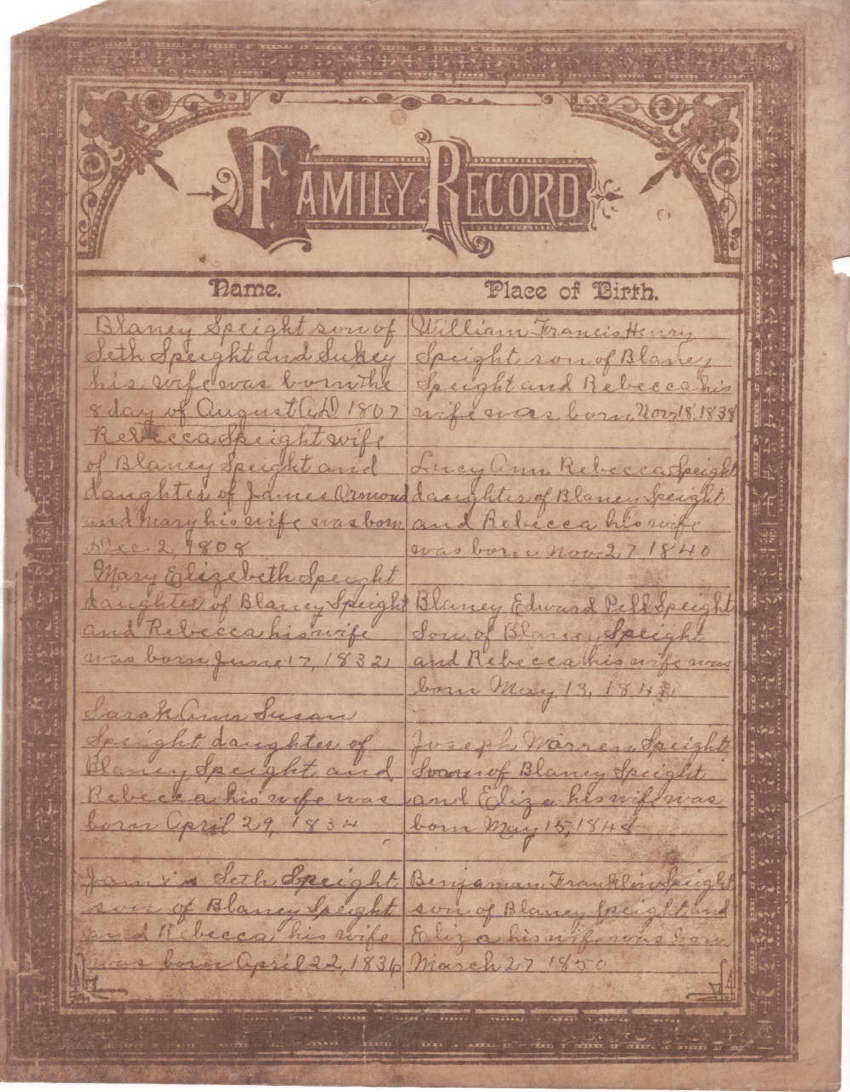 FAMILY RECORD
Name.
Blaney Speight son of
Seth Speight and Sukey
his wife was born the
8 day of August (AD) 1807
Rebecca Speight wife
of Blaney Speight and
daughter of James Ormond
and Mary his wife was born
Dec. 2, 1808
Mary Elizebeth Speight
daughter of Blaney Speight
and Rebecca his wife
was born June 17, 1832
Sarah Ann Susan
Speight daughter of
Blaney Speight and
Rebecca his wife was
born April 29, 1834
James Seth Speight
son of Blaney Speight
and Rebecca his wife
was born April 22, 1836
Place of Birth.
William Francis Henry
Speight son of Blaney
Speight and Rebecca his
wife was born Nov 18, 1838
Lucy Ann Rebecca Speight
daughter of Blaney Speight
and Rebecca his wife
was born Nov 27, 1840
Blaney Edward Pell Speight
Son of Blaney Speight
and Rebecca his wife was
born May 13,
Joseph Warren Speight
Son of Blaney Speight
and Eliza his wife was
born May 15, 1848
Benjaman Franklin Speight
son of Blaney Speight and
Eliza his wife was born
March 27 1850